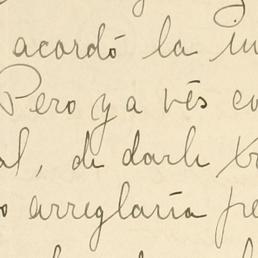 acordó la in
Pero ya vés co
al, de darle tra
o arreglaría pe